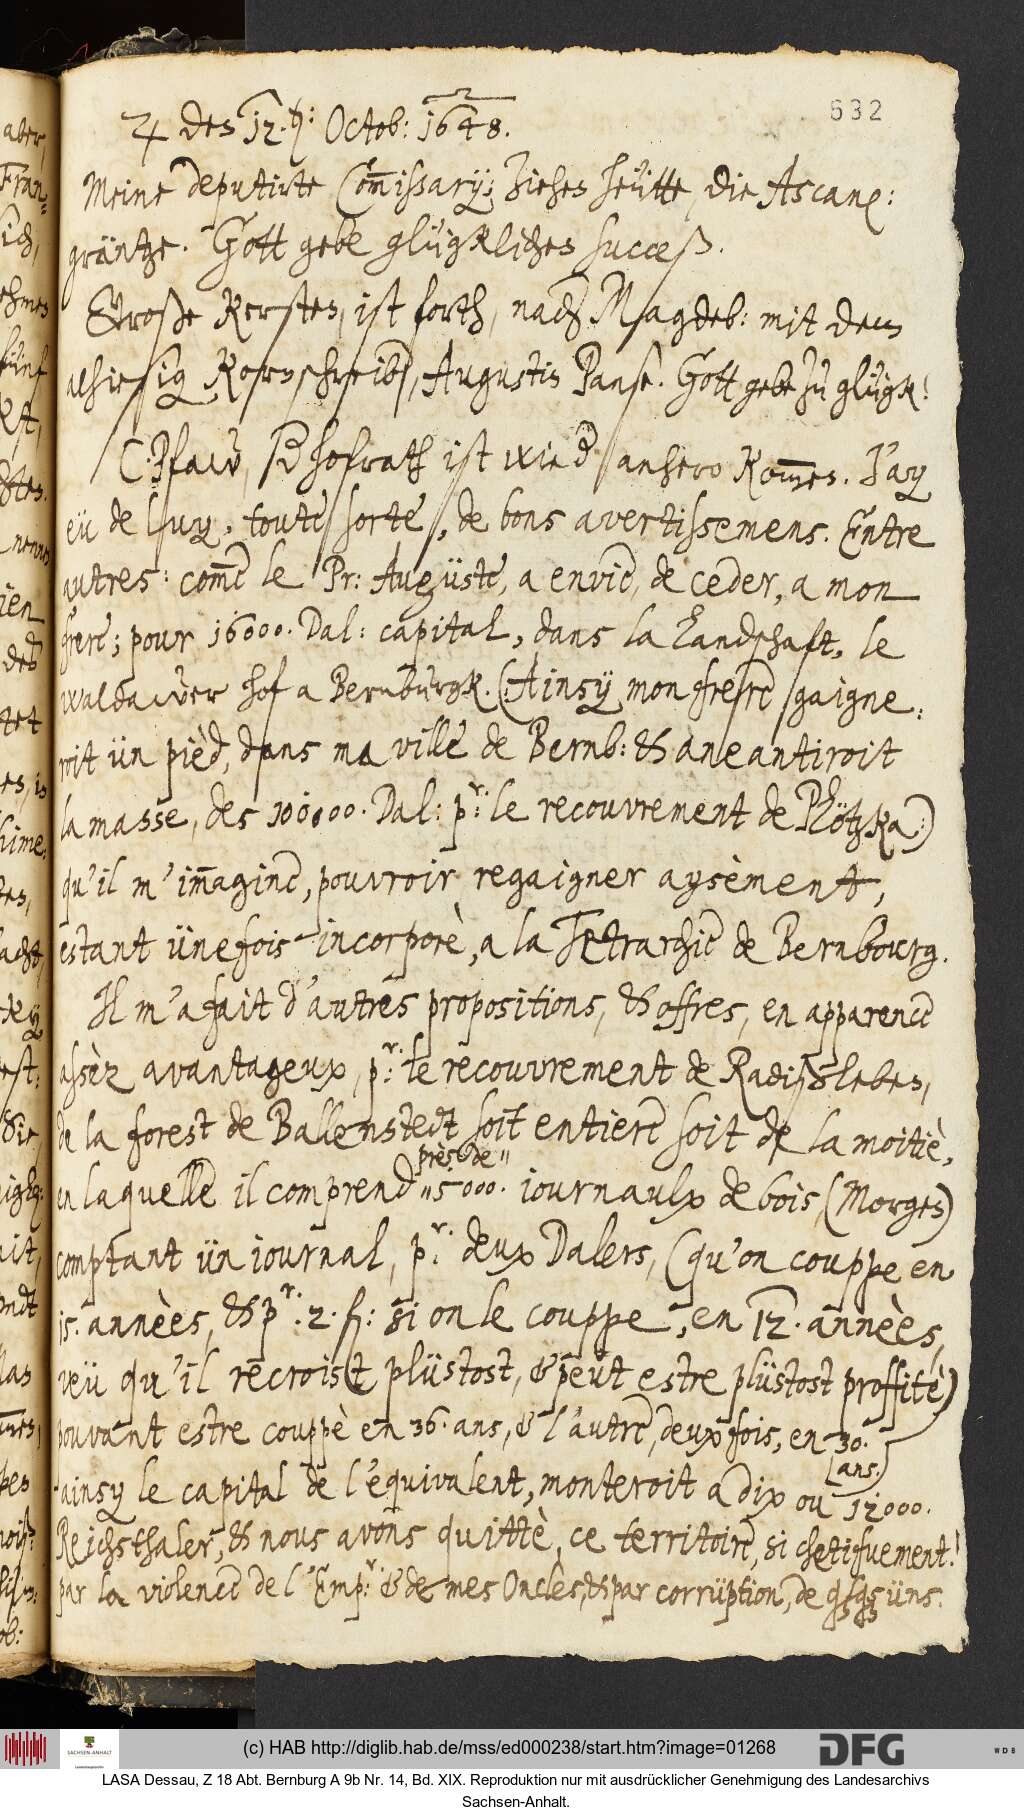 632
♃ des 12.ten: Octob: 1648.
Meine deputirte Com̅issarij; ziehen heütte, die Ascan:
gräntze. Gott gebe glügklichen succeß.
Große Kersten, ist forth, nach Magdeb: mit dem
alhiesig Kornschreib, Augustin Banse. Gott gebe zu glügk!
C. Pfaw, hofrath ist wied anhero kom̅en. J'ay
eü de luy, toute sorte, de bons avertissemens. Entre
autres: com̅e le Pr: Auguste, a envie, de ceder, a mon
frere; pour 16000. Dal: capital, dans la Landschaft, le
Waldawer hof a Bernburgk. (Ainsy mon frere gaigne:
roit ün pièd, dans ma ville de Bernb: & aneantiroit
la masse, des 100000. Dal: pr: le recouvrement de Plötzka:)
qu'il m'im̅agine, pouvroir regaigner aysèment,
estant üne fois incorporè, a la Tetrarchie de Bernbourg.
Il m'a fait d'autres propositions, & offres, en apparence
assèz avantageux, pr: le recouvrement de Radischleben,
de la forest de Ballenstedt soit entiere soit de la moitiè,
en laquelle il comprend près de 5000. journaulx de bois, (Morgen)
comptant ün journal, pr: deux Dalers, (qu'on couppe en
15. annèes, & pr. 2. fl: si on le couppe, en 12. annèes,
veü qu'il recroist plüstost, & peut estre plüstost proffitè)
pouvant estre couppè en 36. ans, & l'autre, deux fois, en 30.
ans.)
ainsy le capital de l'equivalent, monteroit a dix ou 12000.
Reichsthaler, & nous avons quittè, ce territoire, si chetifuement!
par la violence de l'Empr: & de mes Oncles, & par corrüption, de qlqs üns.
(c) HAB http://diglib.hab.de/mss/ed000238/start.htm?image=01268
SACHSEN-ANHALT
DFG
WDB
LASA Dessau, Z 18 Abt. Bernburg A 9b Nr. 14, Bd. XIX. Reproduktion nur mit ausdrücklicher Genehmigung des Landesarchivs
Sachsen-Anhalt.